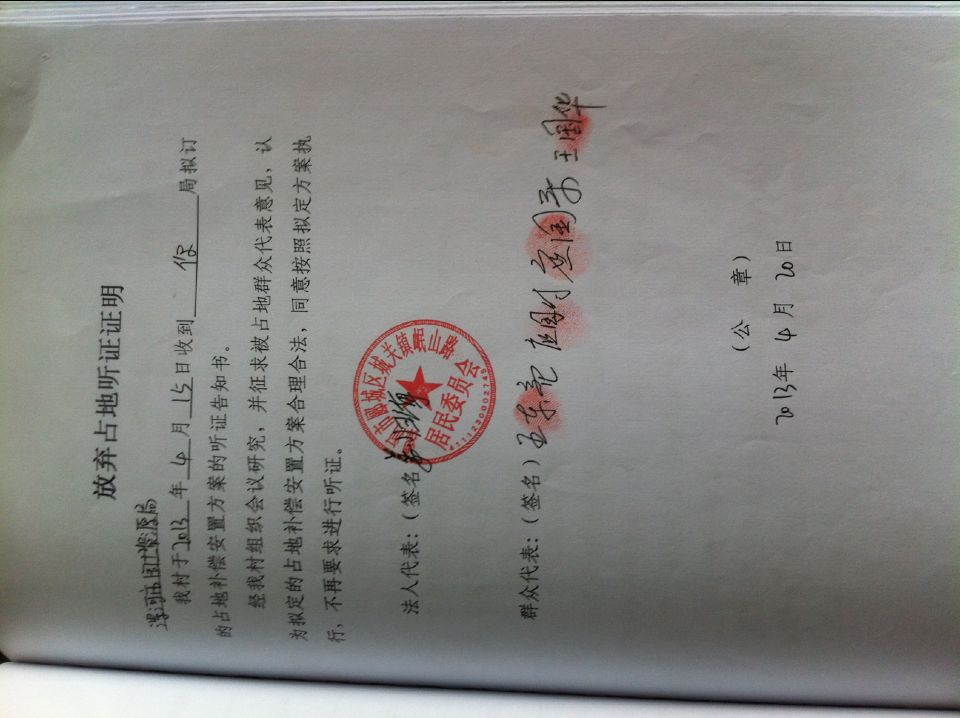 放弃占地听证证明
漯河市国土资源局
我村于2013年4月15日收到 你 局拟订
的占地补偿安置方案的听证告知书。
经我村组织会议研究，并征求被占地群众代表意见，认
为拟定的占地补偿安置方案合理合法，同意按照拟定方案执
行，不再要求进行听证。
法人代表：（签名）
市郾城区城关镇 山路
居民委员会
4111230002745
群众代表：（签名） 王国华
（公 章）
2013年 4月 20日